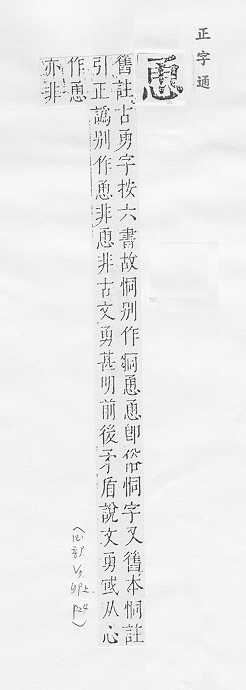 正字通
恿
舊註古勇字按六書故恫別作痌恿恿即俗恫字又舊本恫註
引正譌別作恿非恿非古文勇甚明前後矛盾說文勇或从心
作恿
亦非